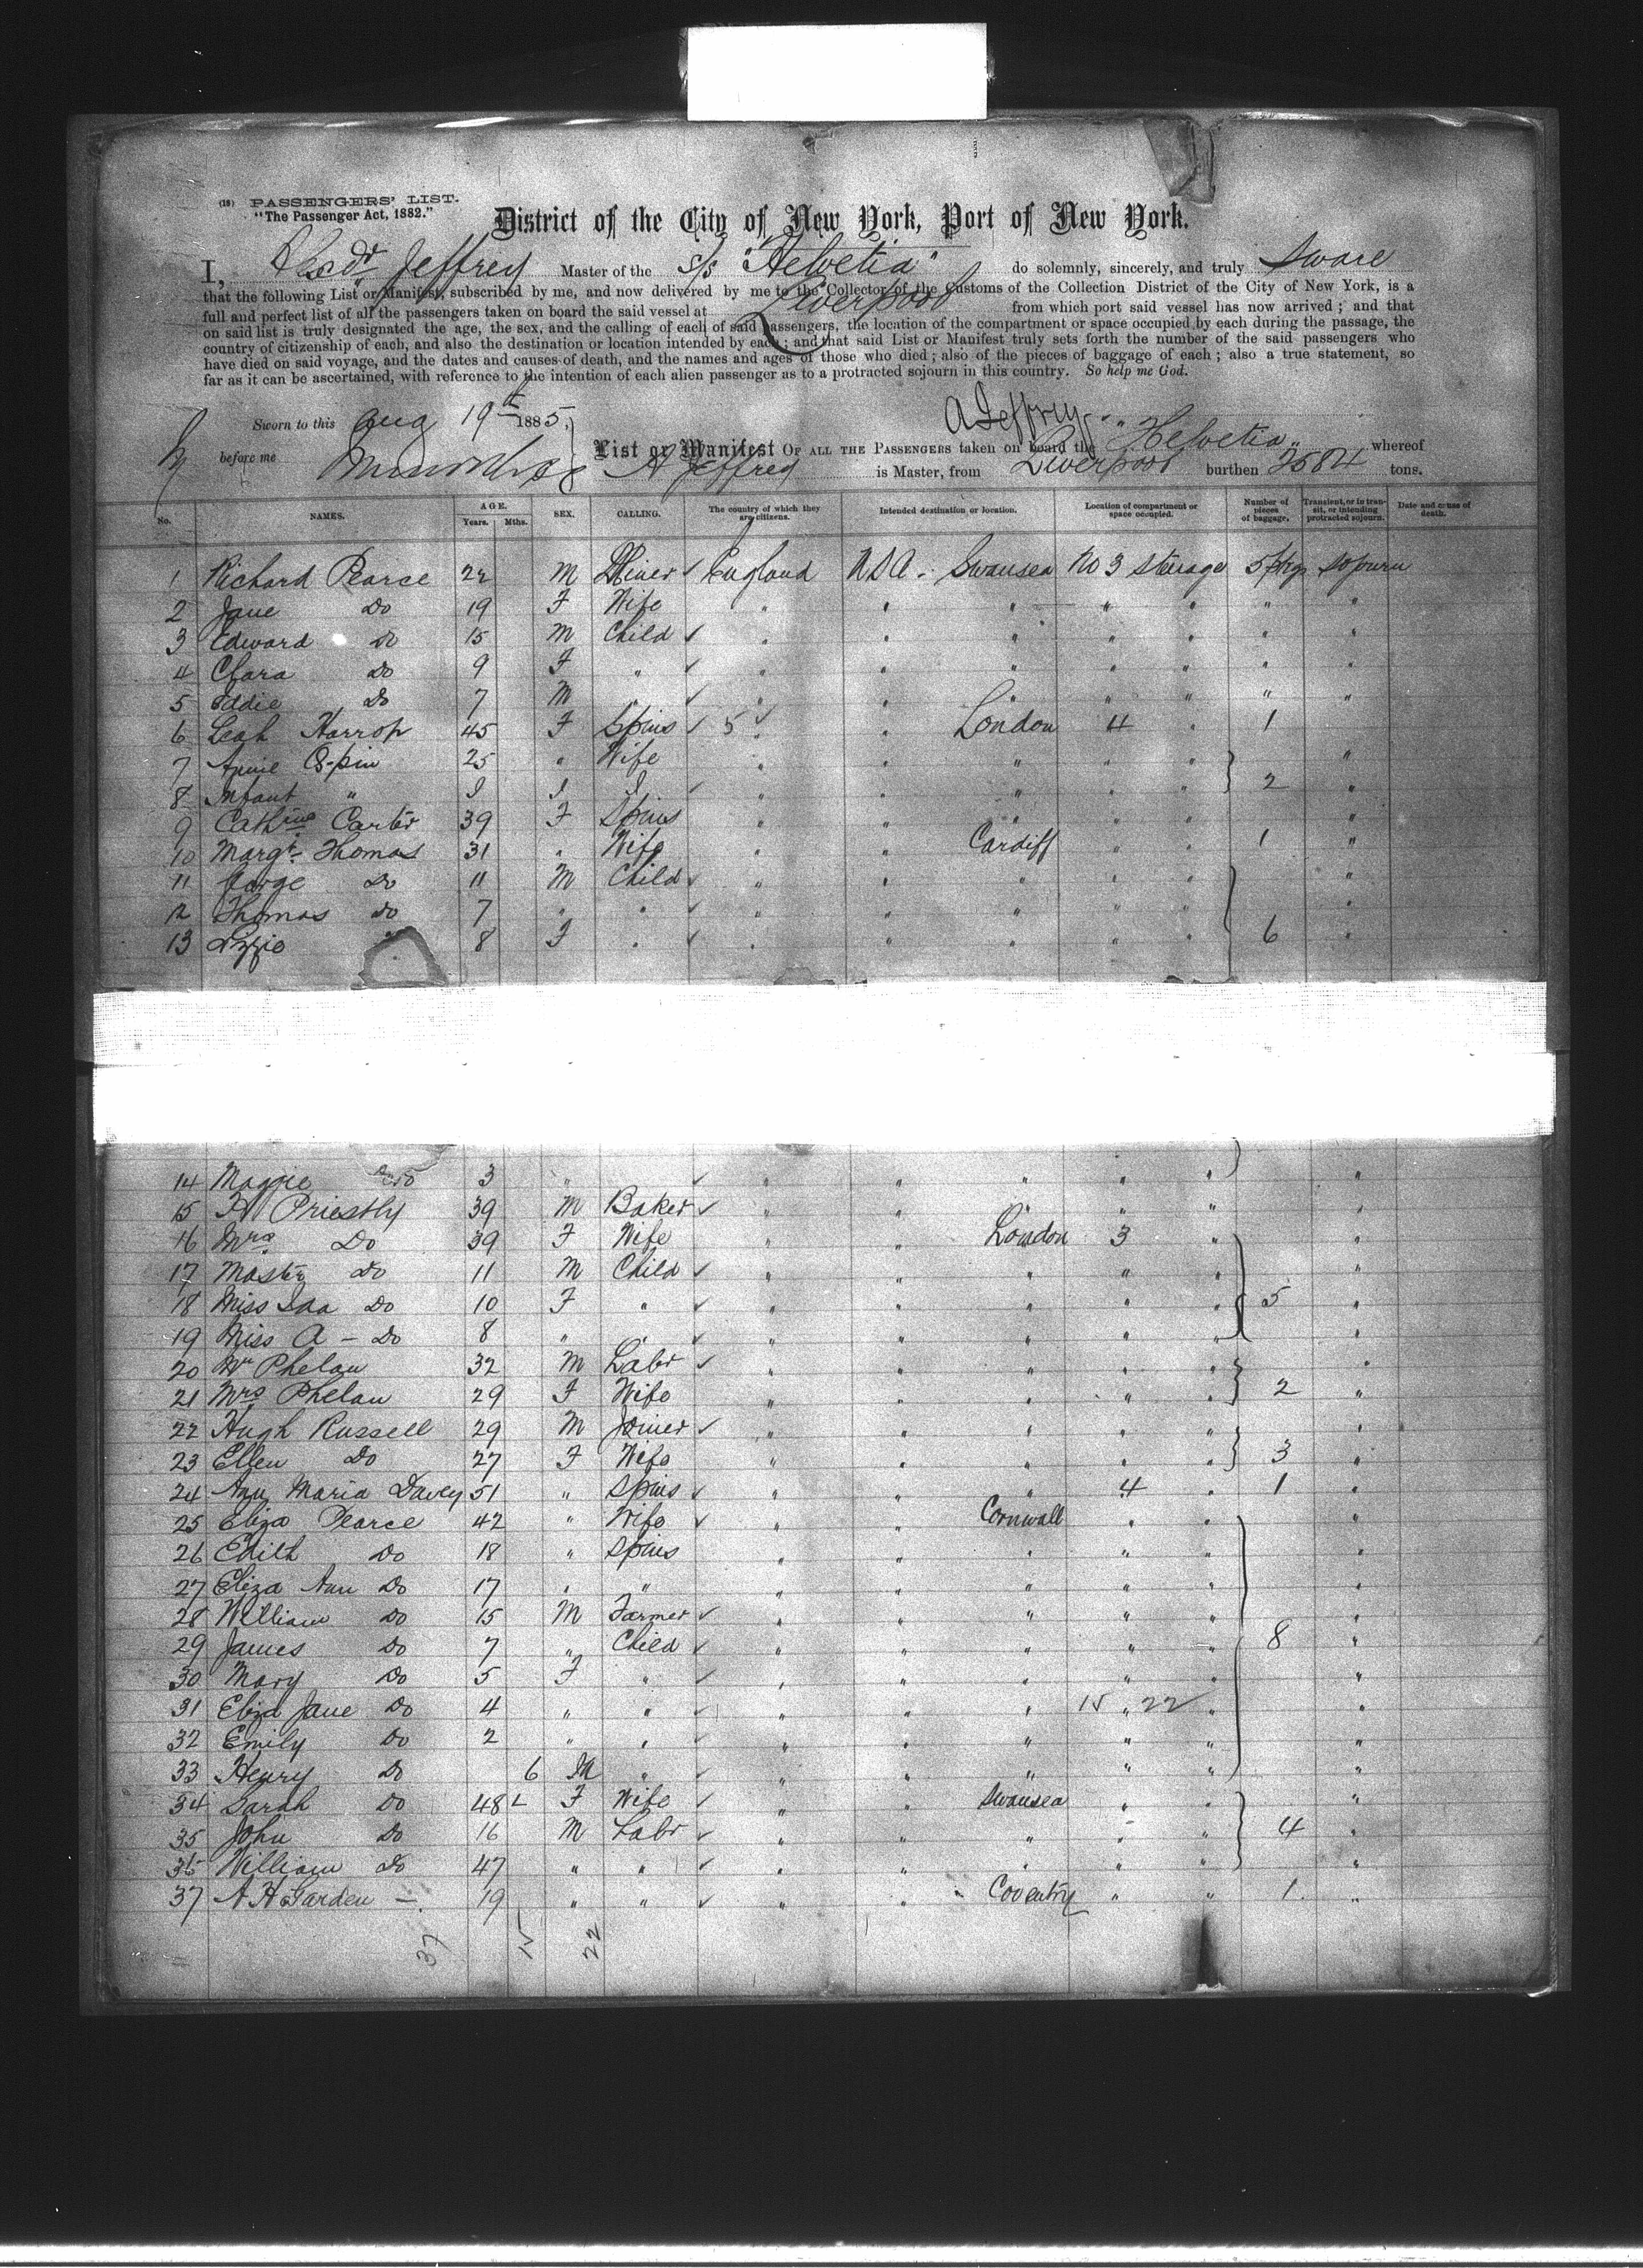 (18) PASSENGERS' LIST.
"The Passenger Act, 1882."
District of the City of New York, Port of New York.
I, Alexdr Jeffrey Master of the S/S "Helvetia" do solemnly, sincerely, and truly Sware
that the following List or Manifest, subscribed by me, and now delivered by me to the Collector of the Customs of the Collection District of the City of New York, is a
full and perfect list of all the passengers taken on board the said vessel at Liverpool from which port said vessel has now arrived; and that
on said list is truly designated the age, the sex, and the calling of each of said passengers, the location of the compartment or space occupied by each during the passage, the
country of citizenship of each, and also the destination or location intended by each; and that said List or Manifest truly sets forth the number of the said passengers who
have died on said voyage, and the dates and causes of death, and the names and ages of those who died; also of the pieces of baggage of each; also a true statement, so
far as it can be ascertained, with reference to the intention of each alien passenger as to a protracted sojourn in this country. So help me God.
A Jeffrey
Sworn to this Aug 19th 1885,
List or Manifest OF ALL THE PASSENGERS taken on board the "Helvetia" whereof
before me
A Jeffrey is Master, from Liverpool burthen 2584 tons.
No. NAMES. AGE. Years. Mths. SEX. CALLING. The country of which they are citizens. Intended destination or location. Location of compartment or space occupied. Number of pieces of baggage. Transient, or in transit, or intending protracted sojourn. Date and cause of death.
1 Richard Pearce 22 M Miner England USA. Swansea No 3 Sterage 5 pkgs sojourn
2 Jane Do 19 F Wife " " " " " " "
3 Edward Do 15 M Child " " " " " " "
4 Clara Do 9 F " " " " " " " "
5 Eddie Do 7 M " " " " " " " "
6 Leah Harrop 45 F Spins 5 " " London 4 " 1
7 Annie 25 " Wife " " " " " "
8 Infant " I I I " " " " " 2 "
9 Cathrine Carter 39 F Spins " " " " " "
10 Margt Thomas 31 " Wife " " Cardiff " " 1 "
11 George Do 11 M Child " " " " " "
12 Thomas Do 7 " " " " " " " "
13 Lizzie 8 F " " " " " " 6 "
14 Maggie Do 3 " " " " " " "
15 H Priestly 39 M Baker " " " " " "
16 Mrs Do 39 F Wife " " London 3 "
17 Master Do 11 M Child " " " " " "
18 Miss Ida Do 10 F " " " " " " 5 "
19 Miss A - Do 8 " " " " " " " "
20 Wm Phelan 32 M Labr " " " " " "
21 Mrs Phelan 29 F Wife " " " " " 2 "
22 Hugh Russell 29 M Joiner " " " " " "
23 Ellen Do 27 F Wife " " " " " 3 "
24 Ann Maria Davey 51 " Spins " " " 4 " 1 "
25 Eliza Pearce 42 " Wife " " Cornwall " " "
26 Edith Do 18 " Spins " " " " " "
27 Eliza Ann Do 17 " " " " " " " "
28 William Do 15 M Farmer " " " " " "
29 James Do 7 " Child " " " " " 8 "
30 Mary Do 5 F " " " " " " "
31 Eliza Jane Do 4 " " " " " 15 " 22 " "
32 Emily Do 2 " " " " " " " "
33 Henry Do 6 M " " " " " " "
34 Sarah Do 48 F Wife " " Swansea " " "
35 John Do 16 M Labr " " " " " 4 "
36 William Do 47 " " " " " " " "
37 A H Garden - 19 " " " " Coventry " " 1 "
37 15 22